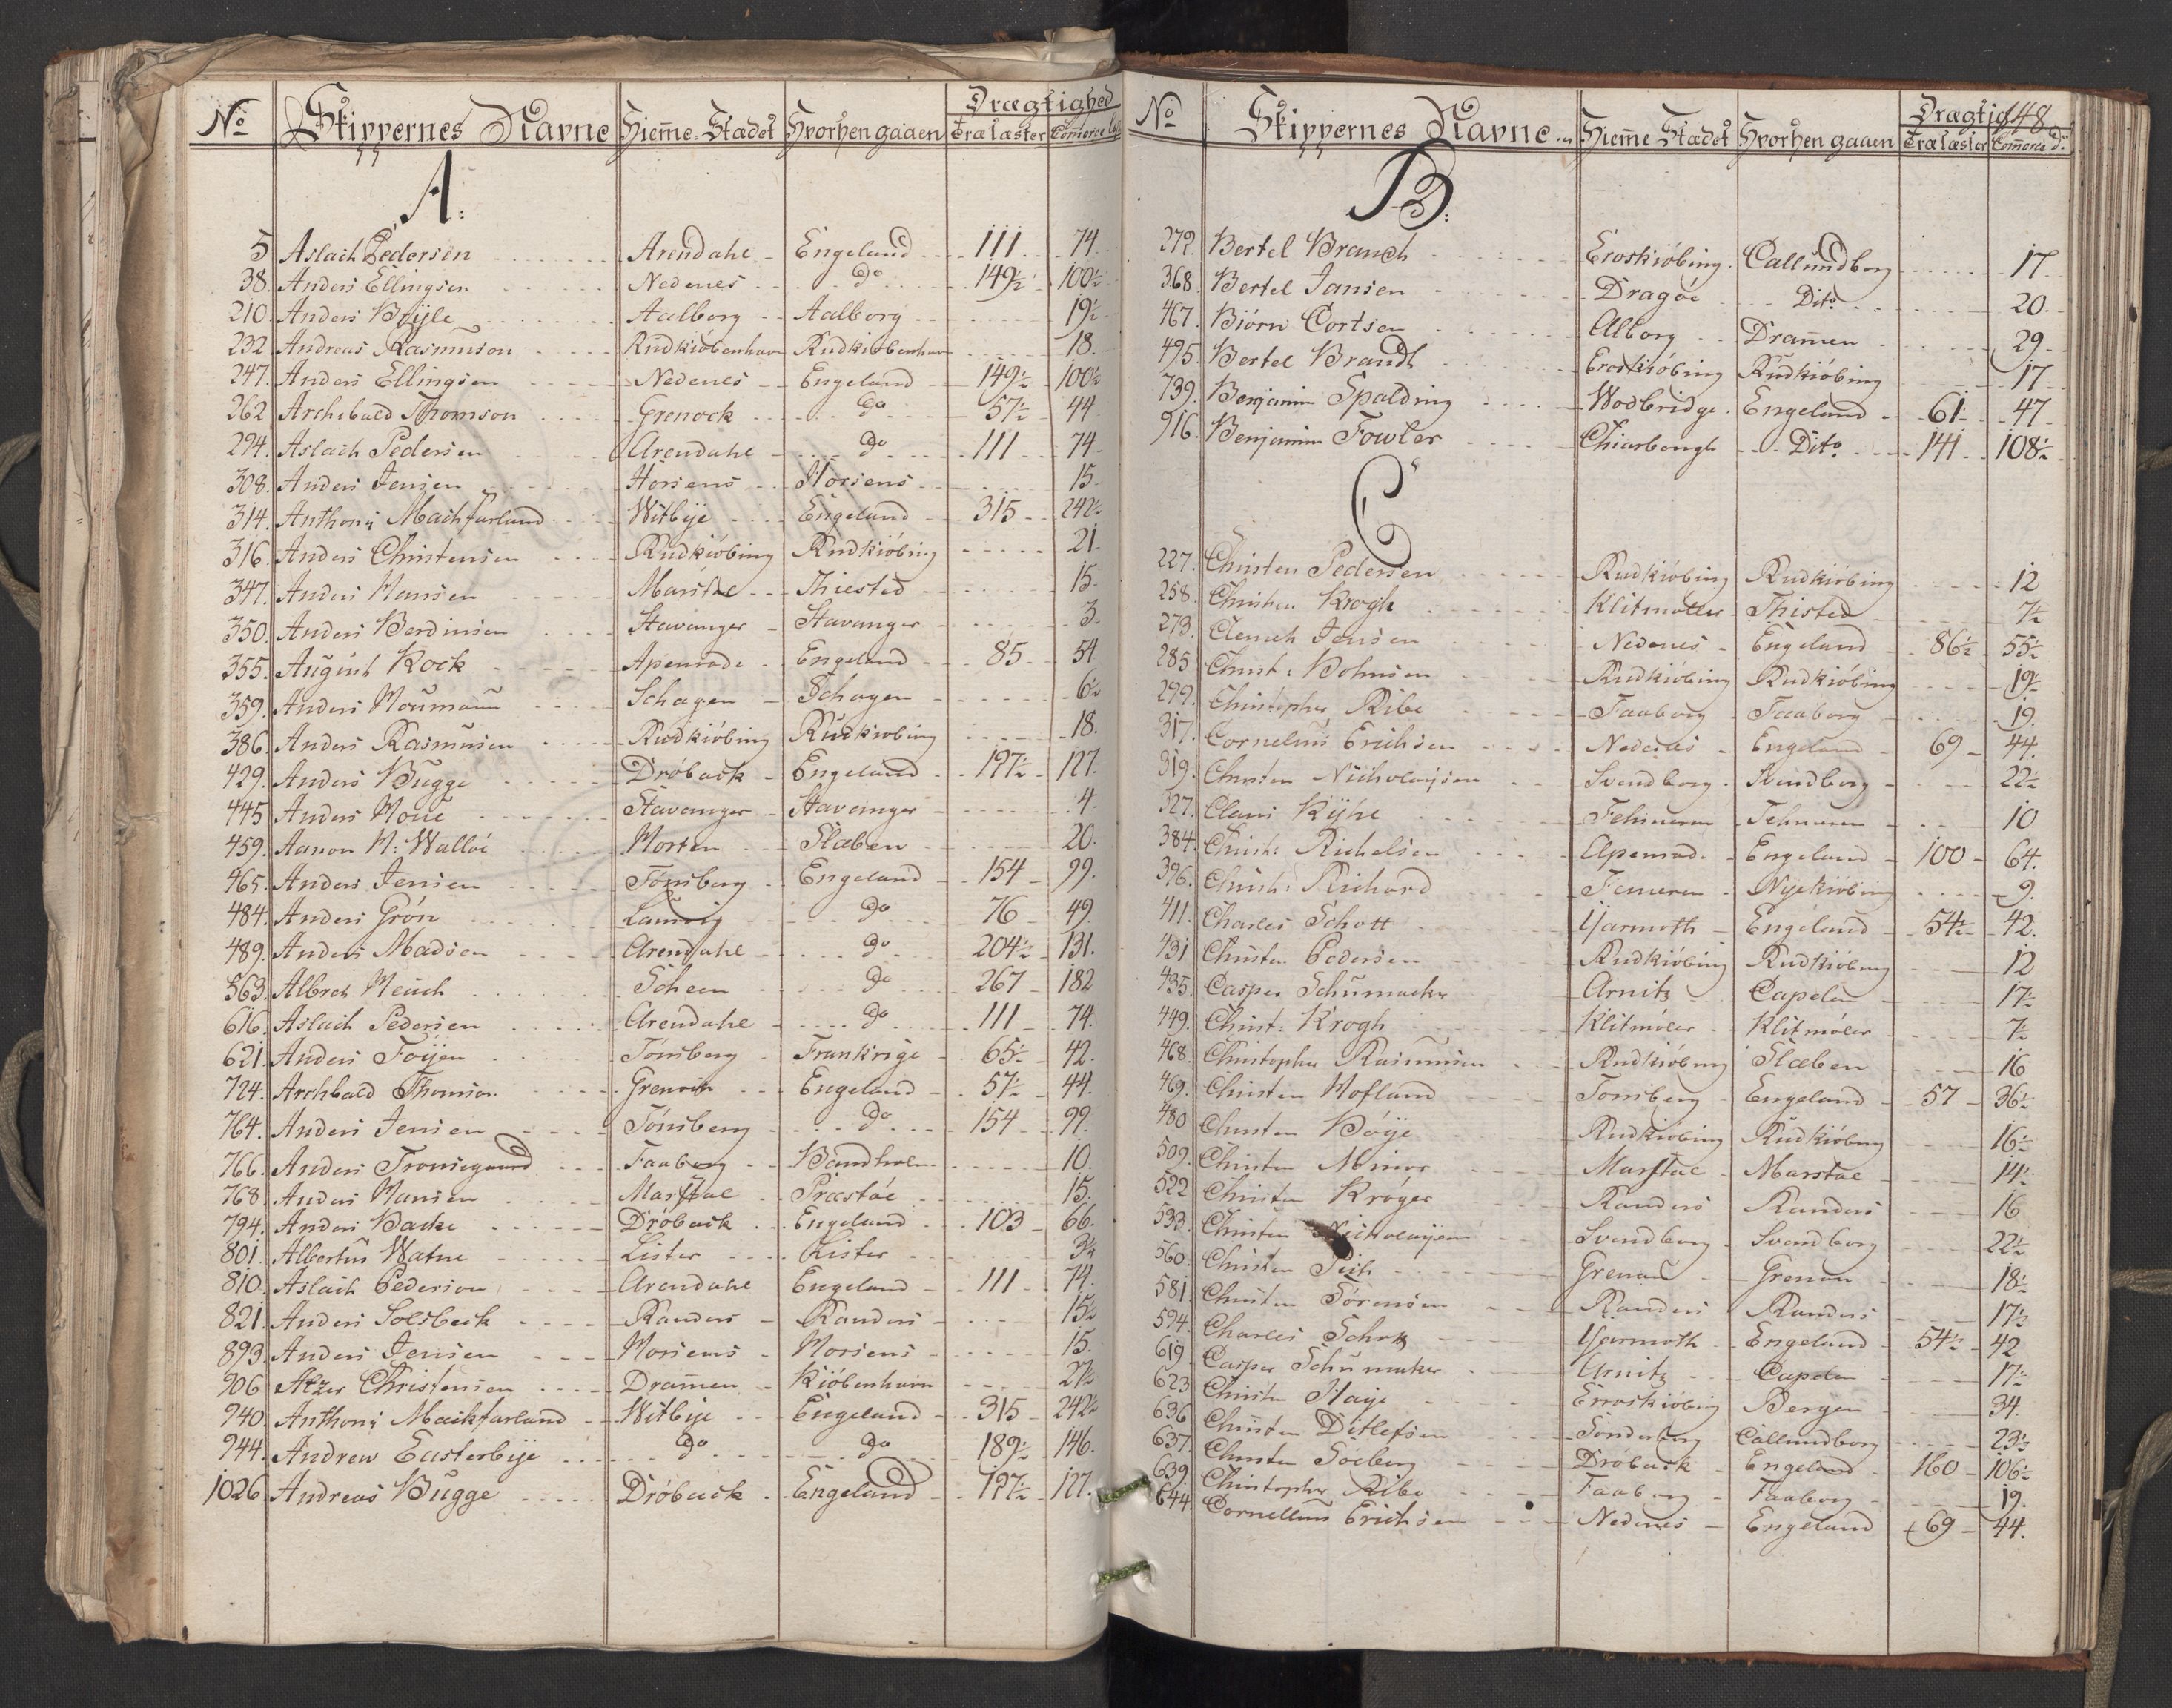 No Skippernes Navne Hieme-Stædet Hvorhen gaaen Drægtighed
Trælæster Comerce
A:
5 Aslach Pedersen Arendahl Engeland 111 74
38. Anders Ellingsen Nedenes do 149½ 100½
210. Anders Brÿle Aalborg Aalborg 19½
232 Andreas Rasmuson Rudkiöbenhavn Rudkiöbenhavn 18.
247. Anders Ellingsen Nedenes Engeland 149½ 100½
262 Archibald Thomson Grenock do 57½ 44
294. Aslach Pedersen Arendahl do 111 74
308. Anders Jensen Horsens Horsens 15
314. Anthonÿ Machfarland Witbÿe Engeland 315 242½
316. Anders Christensen Rudkiöbing Rudkiöbing 21
347. Anders Hansen Marstal Thiested 15
350. Anders Berdinsen Stavanger Stavanger 3
355. August Kock Apenrade Engeland 85 54
359. Anders Noumann Schagen Schagen 6½
386. Anders Rasmusen Rudkiöbing Rudkiöbing 18.
429. Anders Bugge Dröback Engeland 197½ 127.
445 Anders Houe Stavanger Stavanger 4
459. Aanon N: Walloe Horten Slæben 20.
465. Anders Jensen Tönsberg Engeland 154 99.
484. Anders Grön Laurvig do 76 49.
489. Anders Madsen Arendahl do 204½ 131.
563. Albrch Meuch Scheen do 267 182
616. Aslach Pedersen Arendahl do 111 74.
621. Anders Foÿen Tönsberg Frankrige 65½ 42.
724. Archbald Thomson Grenock Engeland 57½ 44.
764. Anders Jensen Tönsberg do 154 99.
766. Anders Tronsegaard Faaborg Bandholm 10.
768 Anders Hansen Marstal Præstöe 15.
794. Anders Backe Dröback Engeland 103 66.
801 Albertus Watne Lister Lister 3½
810. Aslach Pederson Arendahl Engeland 111 74.
821. Anders Solsbeck Randers Randers 15½
893. Anders Jensen Horsens Horsens 15.
906 Atzer Christensen Dramen Kiöbenhavn 27½
940. Anthonÿ Mackfarland Witbÿe Engeland 315 242½
944. Andrew Easterbÿe do do 189½ 146.
1026 Andreas Bugge Dröback Engeland 197½ 127.
No Skippernes Navne Hieme Stædet Hvorhen gaaen Drægtig 148
Trælæster Comerce do
B:
272. Bertel Branch Eroskiöbing Callundborg 17
368. Bertel Jansen Dragöe Dito 20.
467. Biörn Cortsen Alborg Dramen 29
495. Bertel Brandt Eroskiöbing Rudkiöbing 17
739. Benjamin Spalding Wodbridge Engeland 61 47
916. Benjamin Fowler Chiarbough Dito 141 108½
C
227. Christen Pedersen Rudkiöbing Rudkiöbing 12
258. Christen Krogh Klitmöller Thisted 7½
273. Clemeh Jensen Nedenes Engeland 86½ 55½
285 Christ: Bohnsen Rudkiöbing Rudkiöbing 19½
299. Christopher Ribe Faaborg Faaborg 19.
317. Cornelius Erichsen Nedenes Engeland 69 44.
319. Christen Nicholaÿsen Svendborg Svendborg 22½
327. Claus Kÿhl Fehmeren Fehmeren 10
384. Christ: Richelsen Apenrade Engeland 100 64.
396. Christ: Richard Femeren Nÿekiöbing 9.
411. Charles Schott Yarmoth Engeland 54½ 42.
431 Christen Pedersen Rudkiöbing Rudkiöbing 12
435. Casper Schumacker Arnitz Capelen 17½
449. Christ: Krogh Klitmöler Klitmöler 7½
468. Christopher Rasmussen Rudkiöbing Slæben 16
469. Christen Hofland Tonsberg Engeland 57 36½
480 Christen Böÿe Rudkiöbing Rudkiöbing 16½
509. Christen Minor Marstal Marstal 14½
522 Christen Kröger Randers Randers 16
533. Christen Nicholaÿsen Svendborg Svendborg 22½
560. Christen Grenau Grenau 18½
581. Christen Sörensen Randers Randers 17½
594. Charles Yarmoth Engeland 54½ 42
619. Casper Schumaker Arnitz Capelen 17½
623 Christen Eroeskiöbing Bergen 34.
636 Christen Ditlefsen Sonderborg Callundborg 23½
637. Christen Soeberg Dröback Engeland 160 106½
639. Christopher Ribe Faaborg Faaborg 19.
644. Cornellius Erichsen Nedenes Engeland 69 44.